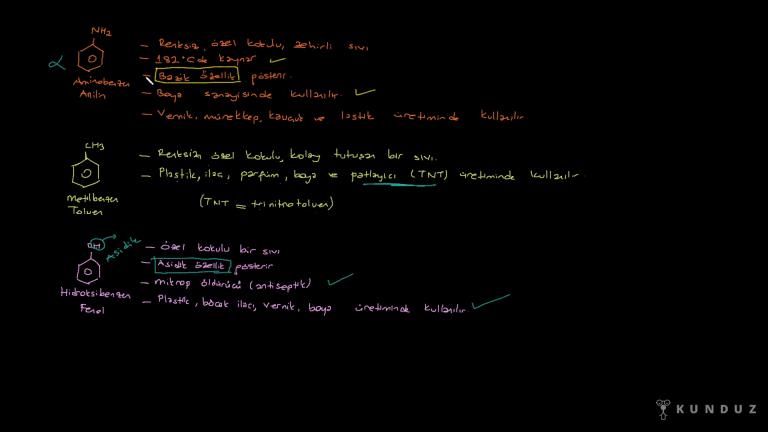 NH2
- Renksiz, özel kokulu, zehirli sıvı
- 182°C de kaynar
α
- Bazik özellik gösterir.
Aminobenzen
Anilin
- Boya sanayisinde kullanılır.
- Vernik, mürekkep, kauçuk ve lastik üretiminde kullanılır
CH3
- Renksiz özel kokulu, kolay tutuşan bir sıvı.
- Plastik, ilaç, parfüm, boya ve patlayıcı (TNT) üretiminde kullanılır.
Metilbenzen
Toluen
(TNT = trinitrotoluen)
OH
Asidik
- Özel kokulu bir sıvı
- Asidik özellik gösterir
- Mikrop öldürücü (antiseptik)
Hidroksibenzen
Fenol
- Plastik, böcek ilacı, vernik, boya üretiminde kullanılır
KUNDUZ